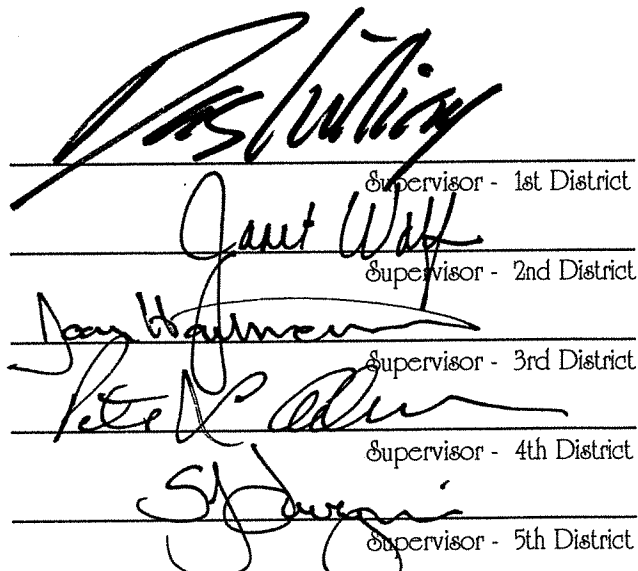 Supervisor - 1st District
Janet Wolf
Supervisor - 2nd District
Joan Hartmann
Supervisor - 3rd District
Pete
Supervisor - 4th District
Supervisor - 5th District